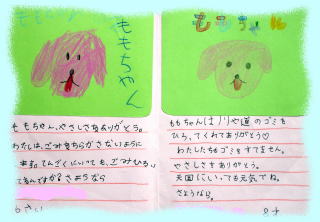 ももちゃん
ももちゃん、やさしさをありがとう。
わたしは、ごみをちらかさないように
します。てんごくにいっても、ごみひろい
してるんですか？さようなら
6さい
ももちゃんは川や道のゴミを
ひろってくれてありがとう♡
わたしたちもゴミをすてません。
やさしさをありがとう。
天国にいっても元気でね。
さようなら。
8才